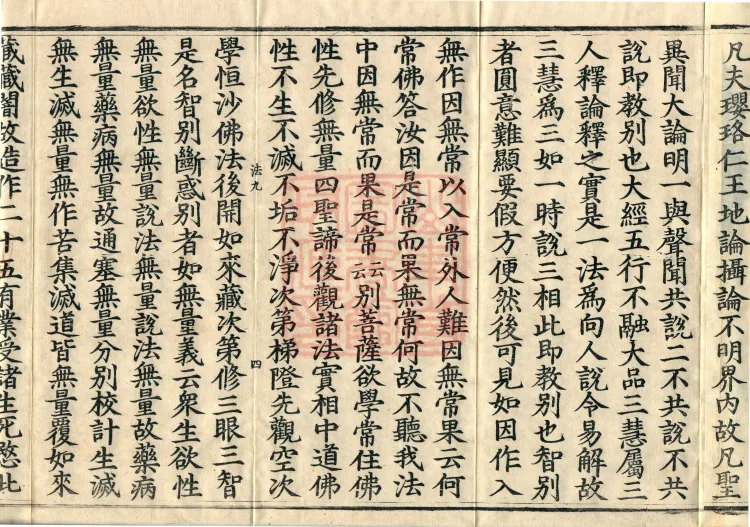 凡夫瓔珞仁王地論攝論不明界內故凡聖
異聞大論明一與聲聞共說二不共說不共
說即教別也大經五行不融大品三慧屬三
人釋論釋之實是一法為向人說令易解故
三慧為三如一時說三相此即教別也智別
者圓意難顯要假方便然後可見如因作入
無作因無常以入常外人難因無常果云何
常佛答汝因是常而果無常何故不聽我法
中因無常而果是常云云別菩薩欲學常住佛
性先修無量四聖諦後觀諸法實相中道佛
性不生不滅不垢不淨次第梯隥先觀空次
法九
四
學恒沙佛法後開如來藏次第修三眼三智
是名智別斷惑別者如無量義云眾生欲性
無量欲性無量說法無量說法無量故藥病
無量藥病無量故通塞無量分別校計生滅
無生滅無量無作苦集滅道皆無量覆如來
藏藏闇故造作二十五有業受諸生死愍此